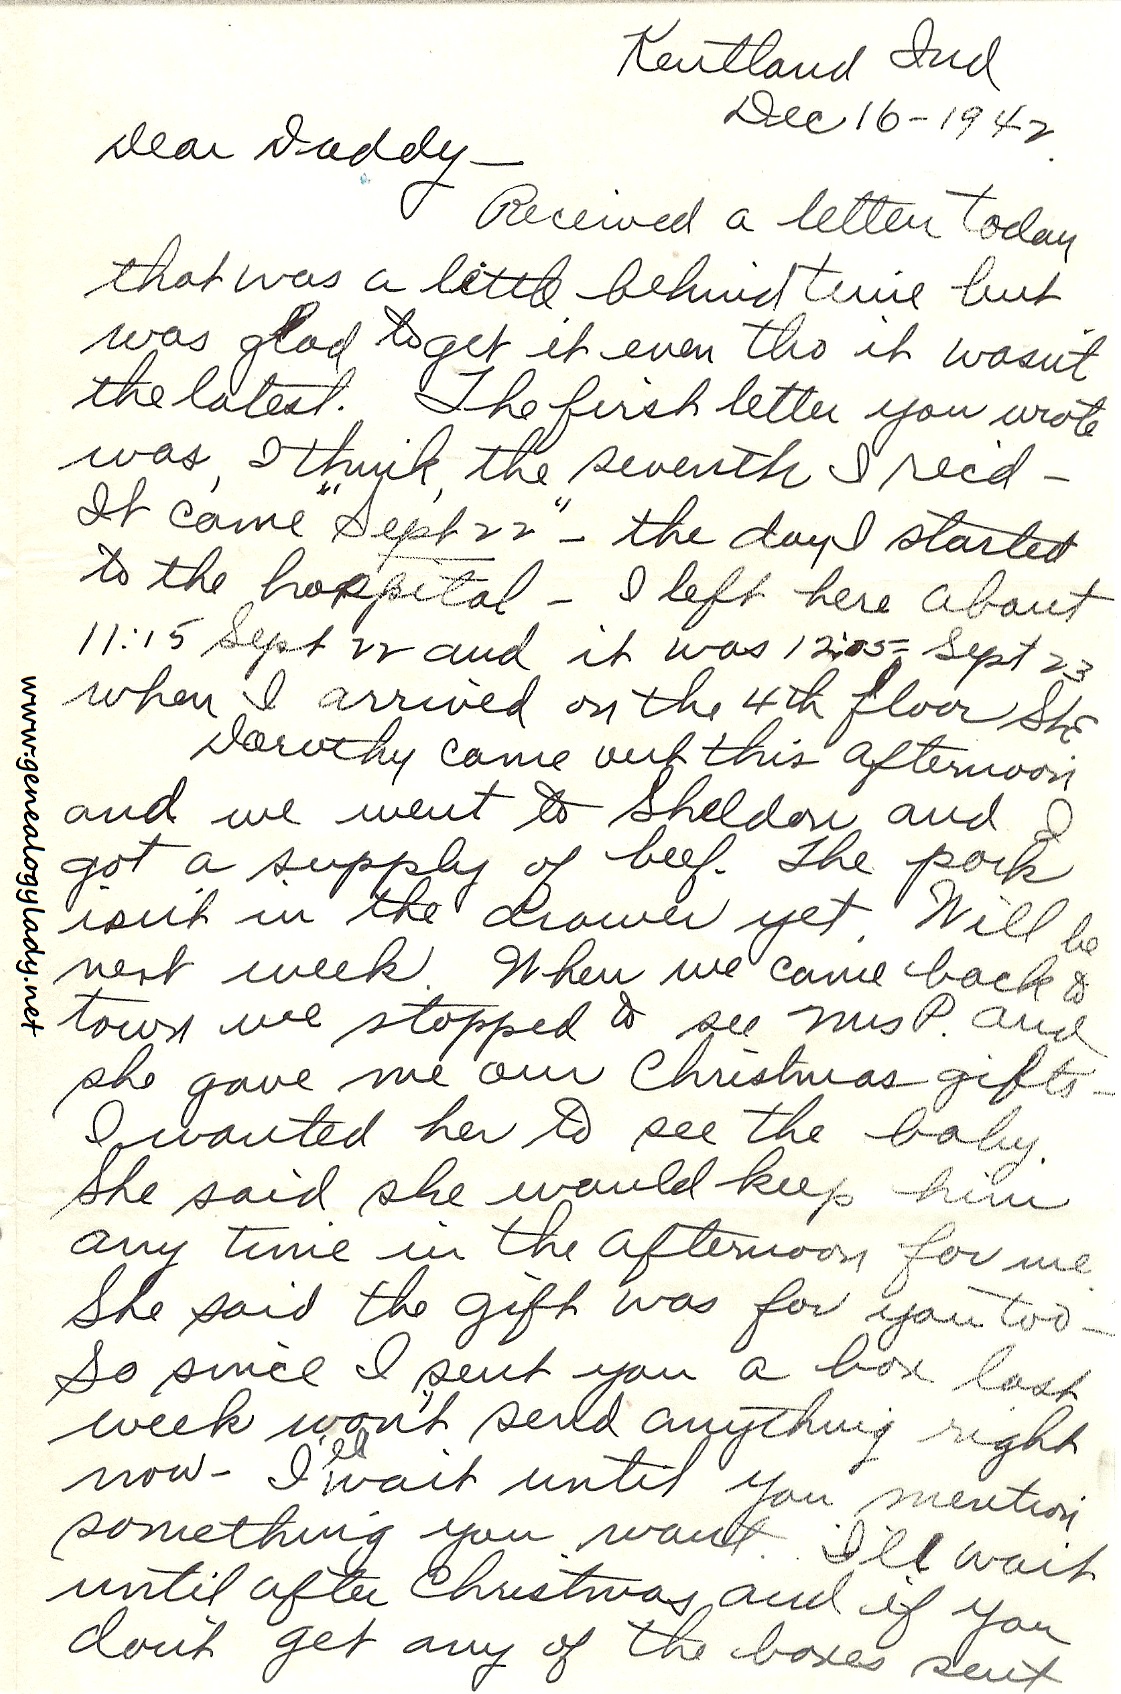 Kentland Ind
Dec 16-1942.
Dear Daddy—
Received a letter today
that was a little behind time but
was glad to get it even tho it wasn't
the latest. The first letter you wrote
was, I think, the seventh I rec'd -
It came "Sept 22" - the day I started
to the hospital - I left here about
11:15 Sept 22 and it was 12:05 = Sept 23
when I arrived on the 4th floor StE
Dorothy came out this afternoon
and we went to Sheldon and I
got a supply of beef. The pork
isn't in the drawer yet. Will be
next week. When we came back to
town we stopped to see Mrs P. and
she gave me our Christmas gifts -
I wanted her to see the baby.
She said she would keep him
any time in the afternoon for me.
She said the gift was for you too -
So since I sent you a box last
week won't send anything right
now - I'll wait until you mention
something you want. I'll wait
until after Christmas and if you
don't get any of the boxes sent
www.genealogylady.net